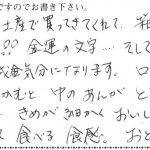 ですのでお書き下さい。
土産で買ってきてくれて、
!! 金運の文字… そして
成金気分になります。 口
かむと中のあんがど
きめが細かく おいし
食べる 食感。 おと